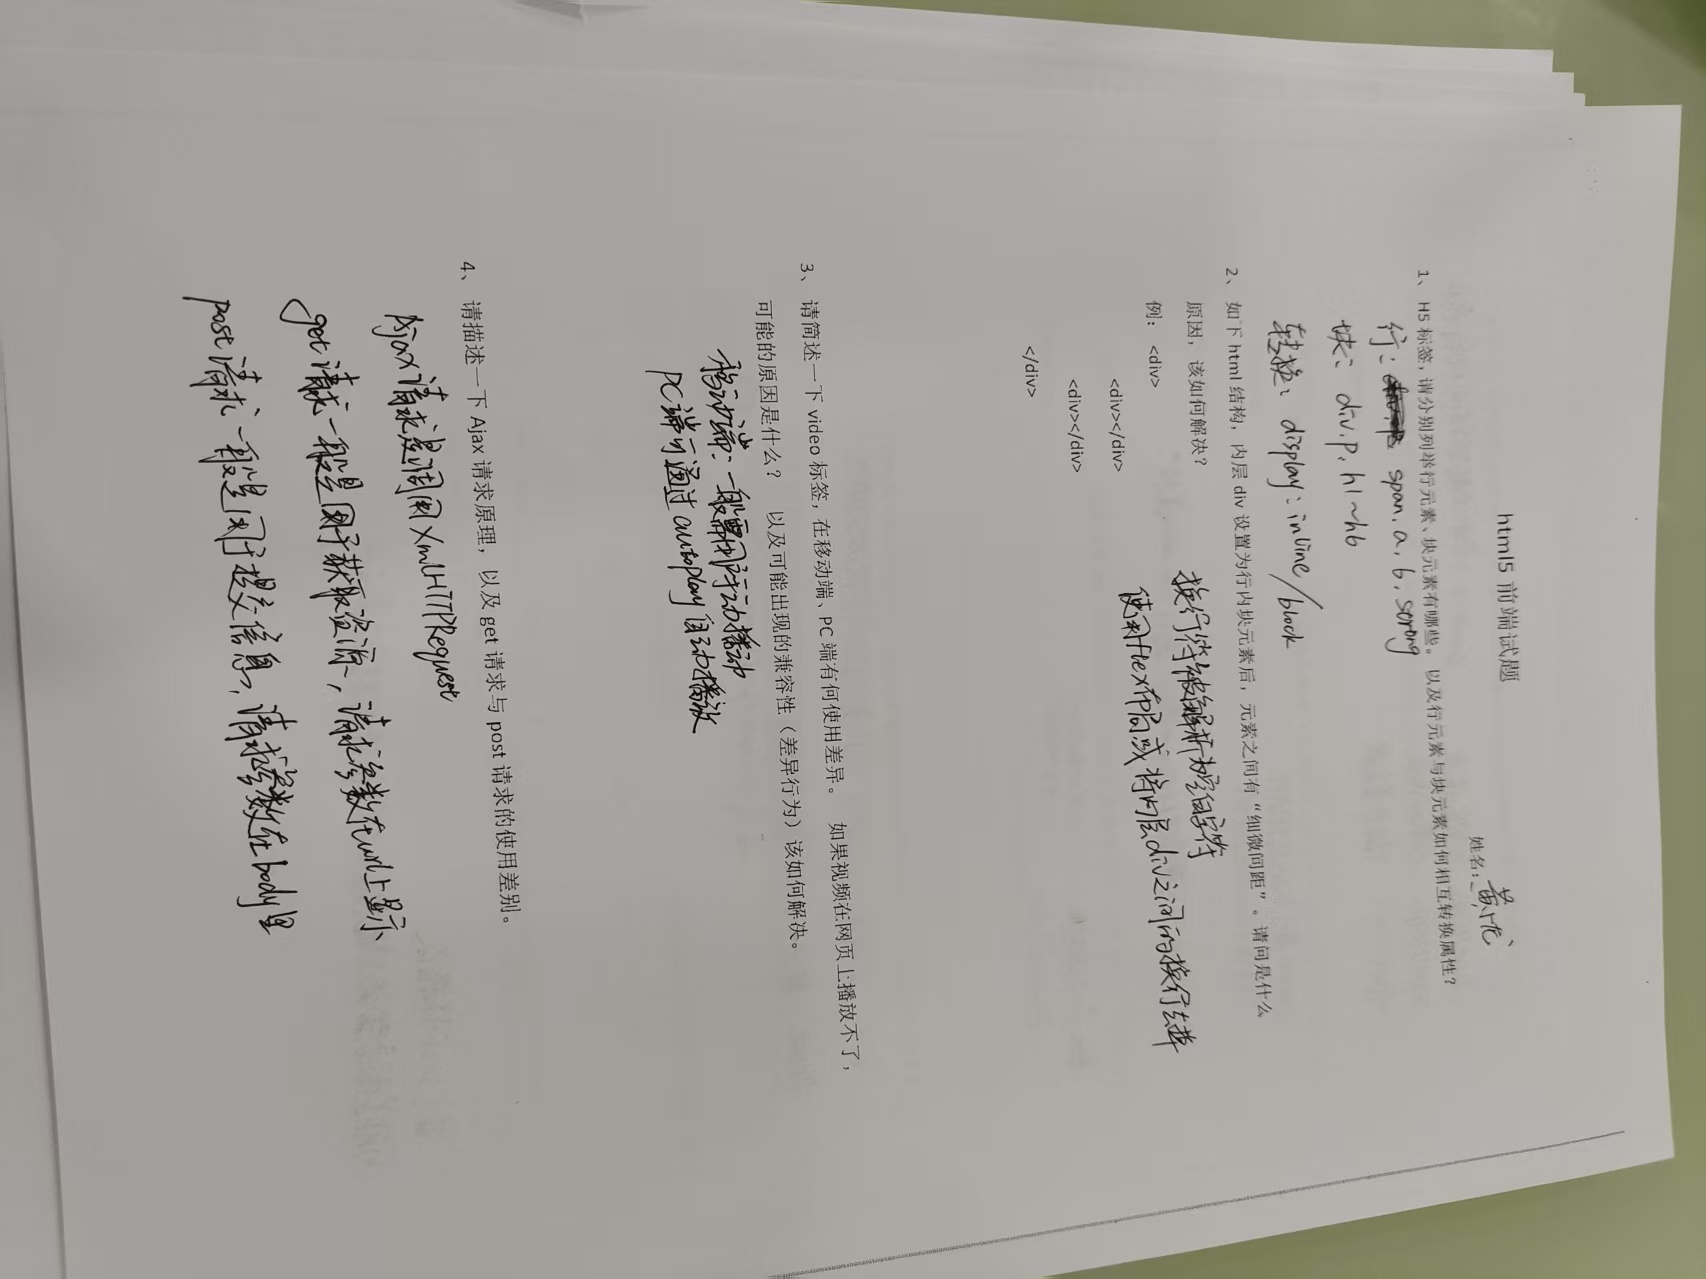 html5 前端试题
姓名：黄龙
1、 H5 标签，请分别列举行元素、块元素有哪些。 以及行元素与块元素如何相互转换属性？
行： span, a, b, strong
块： div, p, h1~h6
转换： display: inline/block
2、 如下 html 结构，内层 div 设置为行内块元素后，元素之间有“细微间距”。请问是什么
原因，该如何解决？
换行符被解析为空白字符
例： <div>
使用flex布局或将内层div之间的换行去掉
<div></div>
<div></div>
</div>
3、 请简述一下 video 标签，在移动端、PC 端有何使用差异。 如果视频在网页上播放不了，
可能的原因是什么？ 以及可能出现的兼容性（差异行为）该如何解决。
移动端：一般需手动播动
PC端可通过autoplay自动播放
4、 请描述一下 Ajax 请求原理，以及 get 请求与 post 请求的使用差别。
Ajax请求是调用XmlHTTPRequest
get请求一般是用于获取资源，请求参数在url上显示
post请求一般是用于提交信息，请求参数在body里